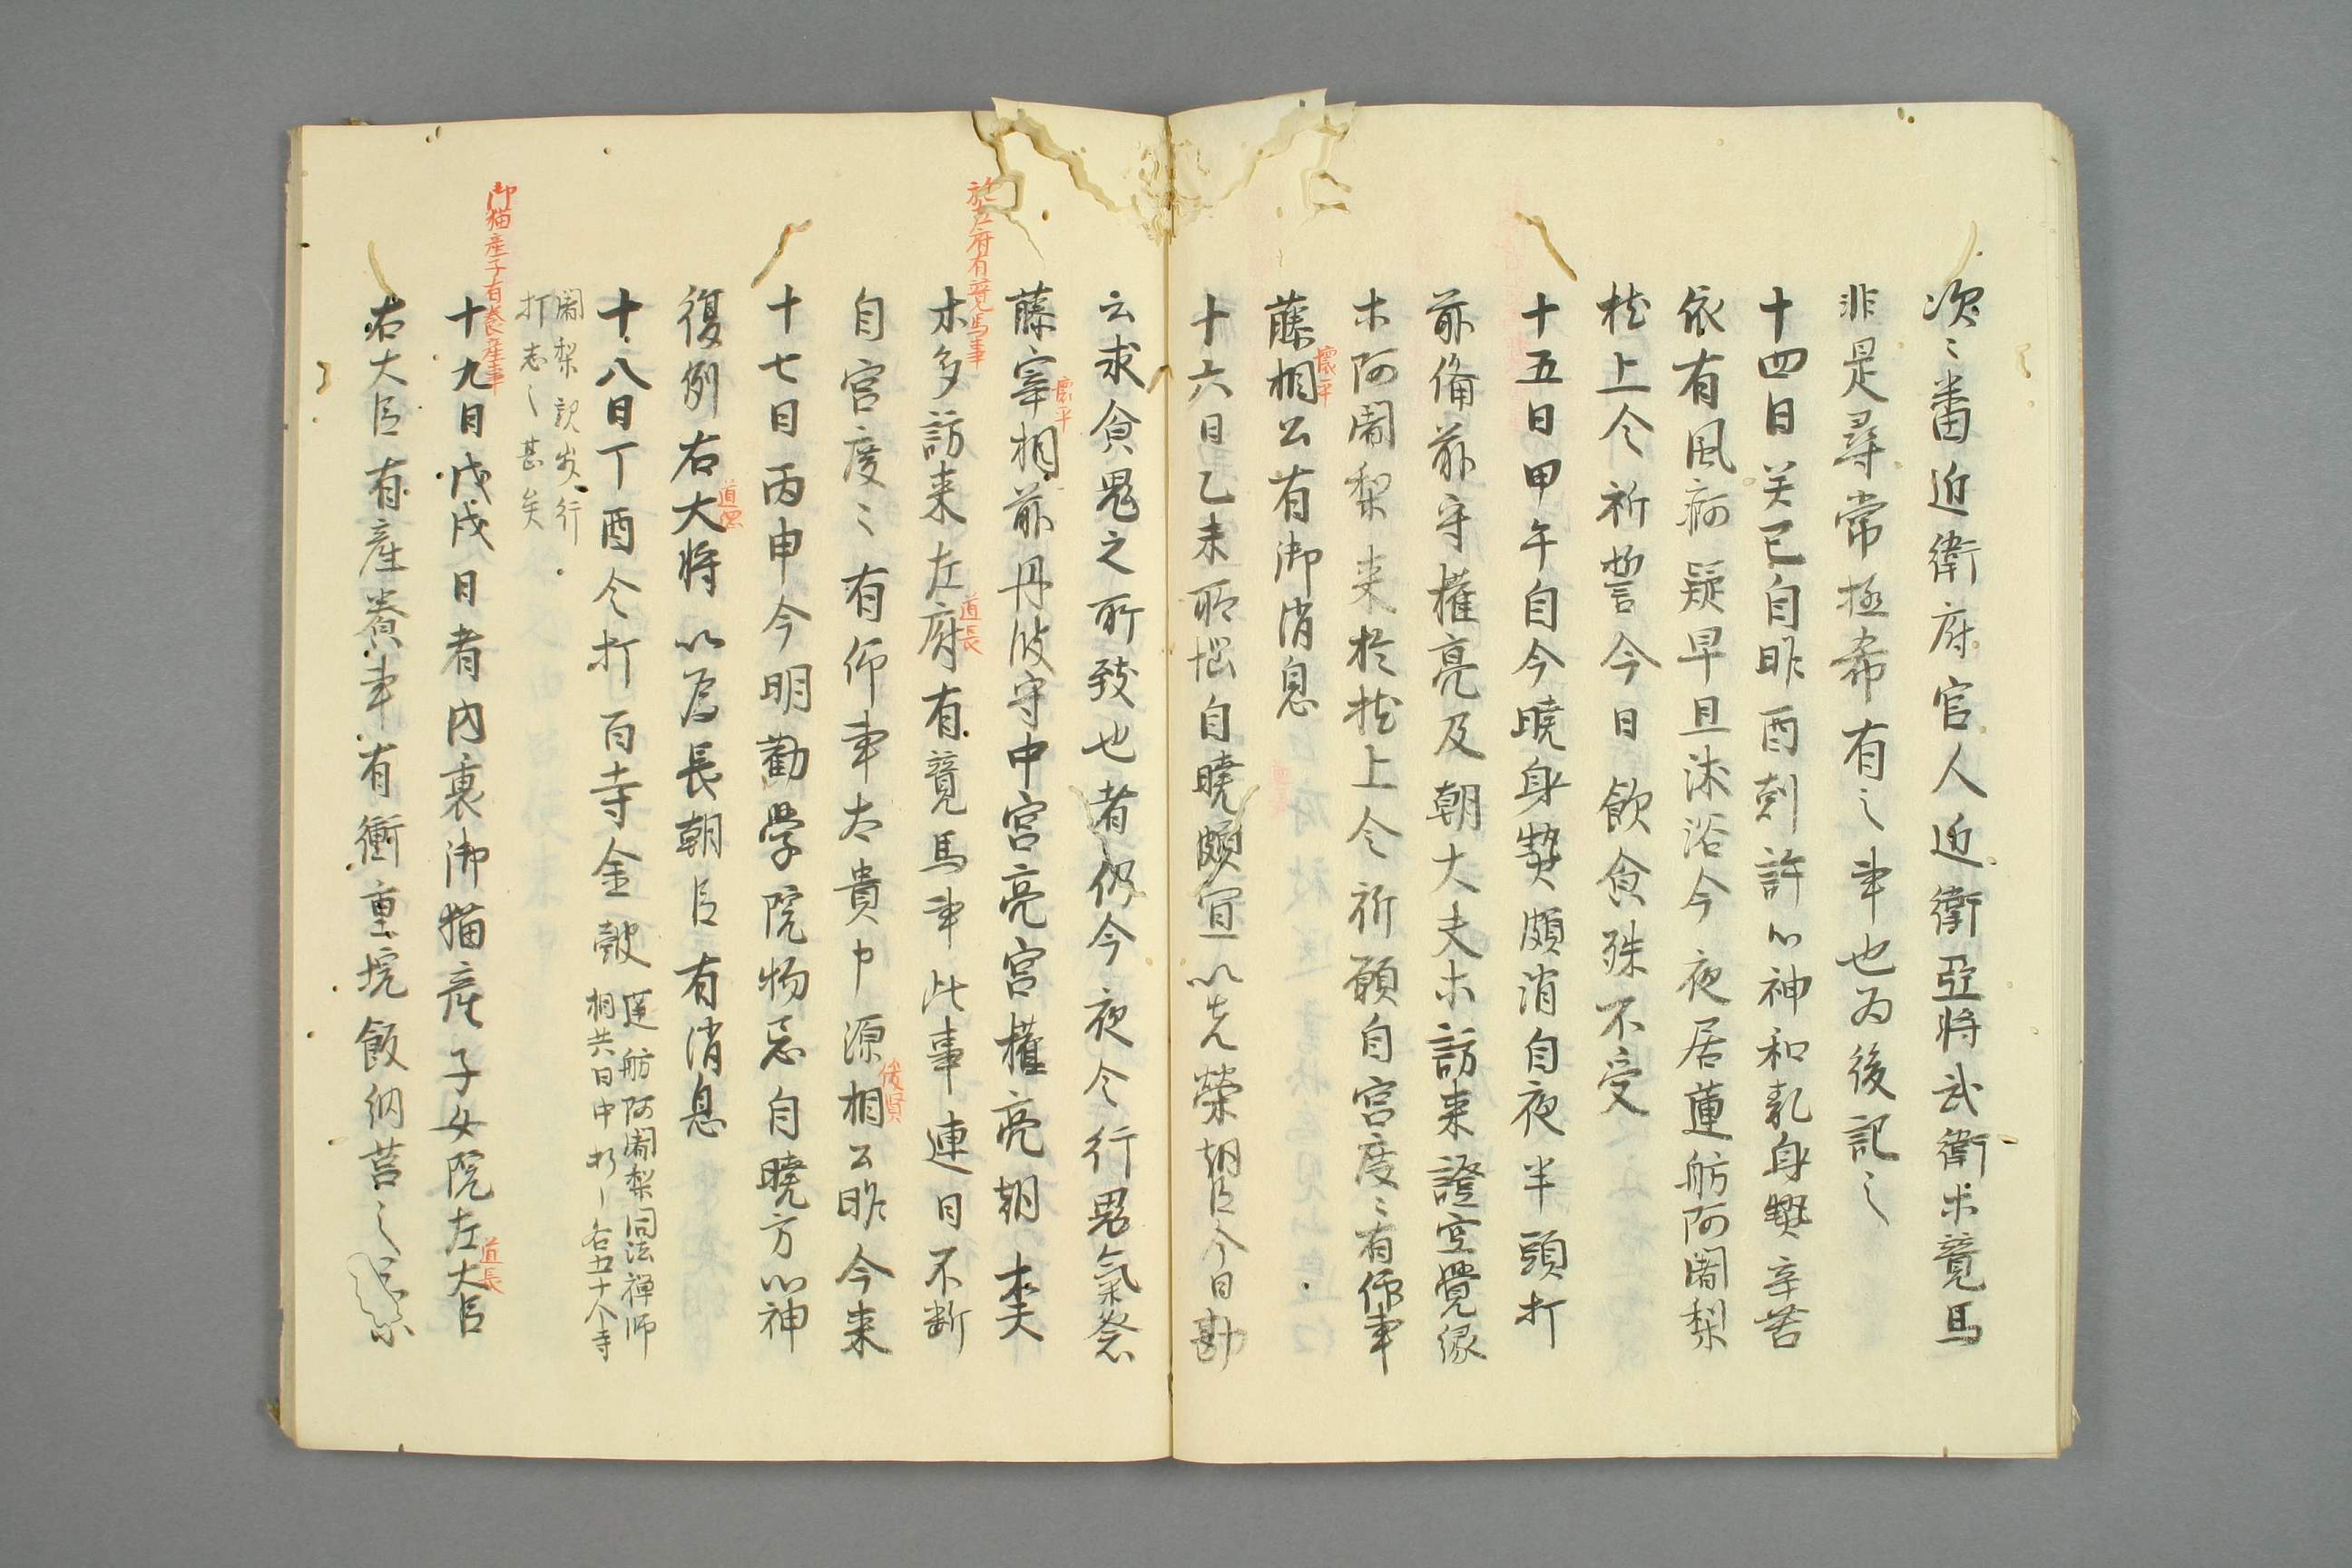 次々番近衛府官人近衛亞将武衛未競馬
非是尋常極希有之事也為後記之
十四日癸巳自昨酉剋許心神和乱身熱辛苦
依有風病疑早旦沐浴今夜居蓮舫阿闍梨
枕上令祈誓今日飲食殊不受
十五日甲午自今暁身熱頗消自夜半頭打
前備前守權亮及朝大夫木訪来證空覺縁
木阿闍梨来於枕上令祈願自宮度々有仰事
藤相公有御消息
懐平
十六日乙未所悩自暁頗宜一以先榮朝臣今日勘
云求食鬼之所致也者仍今夜令行鬼氣祭
藤宰相前丹波守中宮亮宮權亮朝大夫
懐平
於左府有競馬事
木多訪来左府有競馬事此事連日不断
道長
自宮度々有仰事太貴中源相公昨今来
俊賢
十七日丙申今明勸学院物忌自暁方心神
復例右大将以為長朝臣有消息
道綱
十八日丁酉令打百寺金皷蓮舫阿闍梨同法禅師
相共日中打之各五十个寺
闍梨説出行
打志之甚矣
御猫産子有養産事
十九日戊戌日者内裏御猫産子女院左大臣
道長
右大臣有産養事有衝重垸飯納筥之